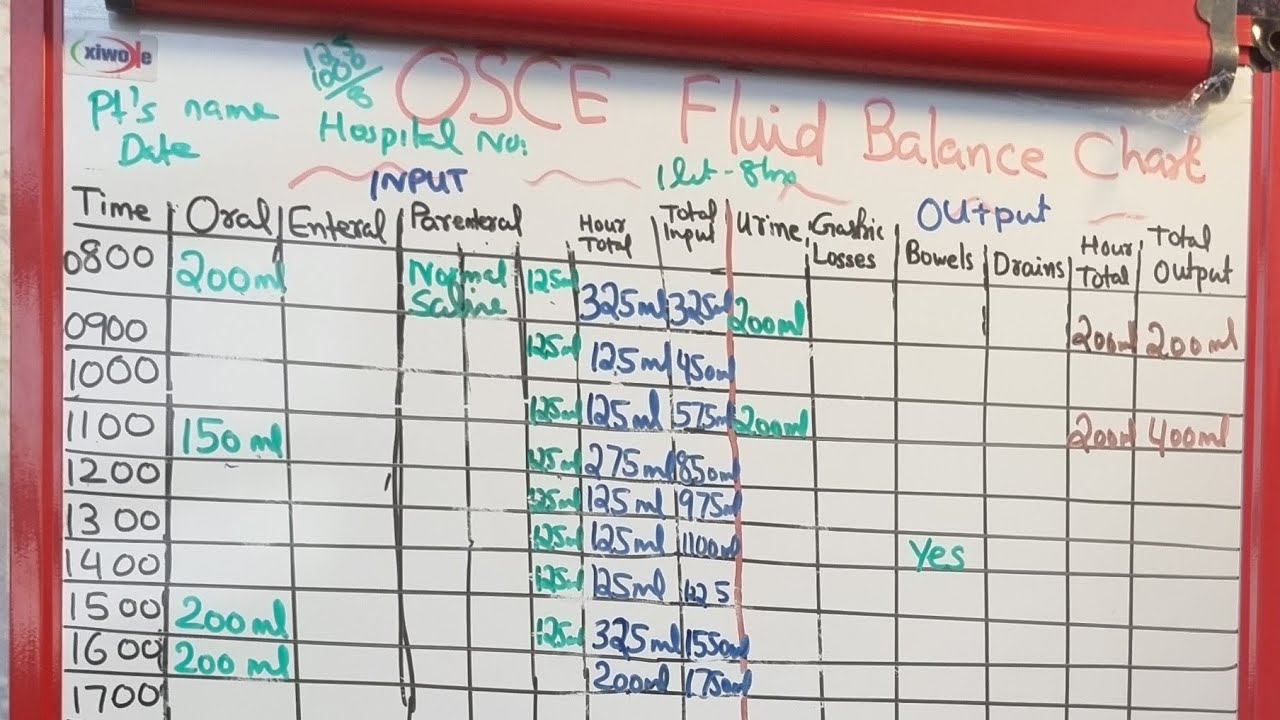 xiwode
125
1000
8
OSCE Fluid Balance Chart
Pt's name
Hospital No:
Date
INPUT
1 lit - 8hrs
OUtpUt
Time Oral Enteral Parenteral Hour Total Total Input Urine Gastric Losses Bowels Drains Hour Total Total Output
0800 200ml Normal Saline 125ml 325ml 325ml 200ml 200ml 200ml
0900 125ml 125ml 450ml
1000 125ml 125ml 575ml 200ml 200ml 400ml
1100 150ml 125ml 275ml 850ml
1200 125ml 125ml 975ml
1300 125ml 125ml 1100ml Yes
1400 125ml 125ml
1500 200ml 125ml 325ml 1550ml
1600 200ml 200ml 1750ml
1700